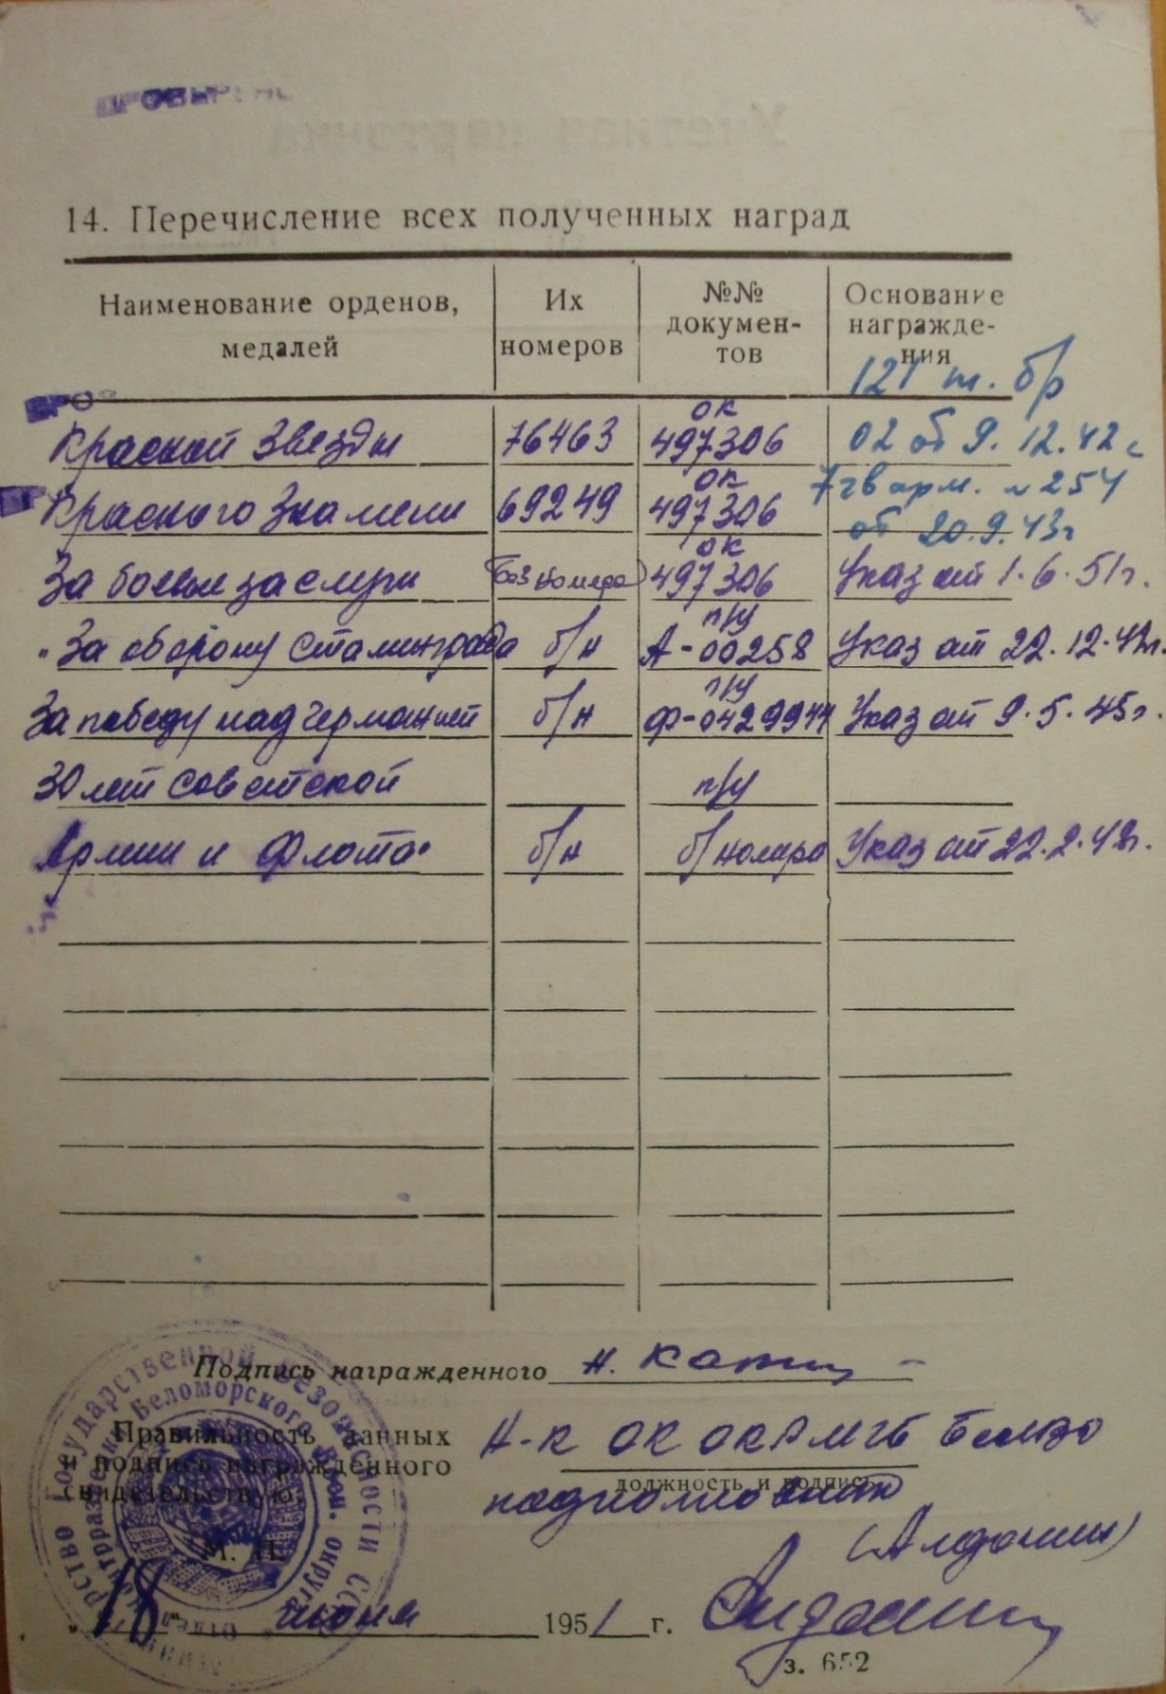 14. Перечисление всех полученных наград
Наименование орденов, медалей
Их номеров
№№ докумен-тов
Основание награжде-ния
121 т. бр
Красной Звезды 76463 ок 497306 02 от 9.12.42 г
Красного Знамени 69249 ок 497306 7 гв арм. № 254 от 20.9.43г
За боевые заслуги Без номера ок 497306 Указ от 1.6.51г.
"За оборону Сталинграда б/н п/у А-00258 Указ от 22.12.42г.
За победу над германией б/н п/у Ф-0429944 Указ от 9.5.45г.
30 лет советской п/у
Армии и Флота. б/н б/номера Указ от 22.2.48г.
Подпись награжденного Н.
Правильность данных и подпись награжденного свидетельствую.
Н-к ОК ОКР МГБ БелВО
должность и подпись
М. П.
"18" июня 1951 г.
з. 652